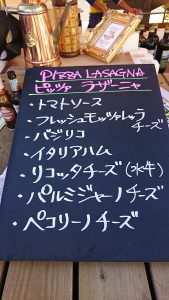 PIZZA LASAGNA
ピッツァ ラザーニャ
・トマトソース
・フレッシュモッツァレラ
チーズ
・バジリコ
・イタリアハム
・リコッタチーズ(水牛)
・パルミジャーノチーズ
・ペコリーノチーズ